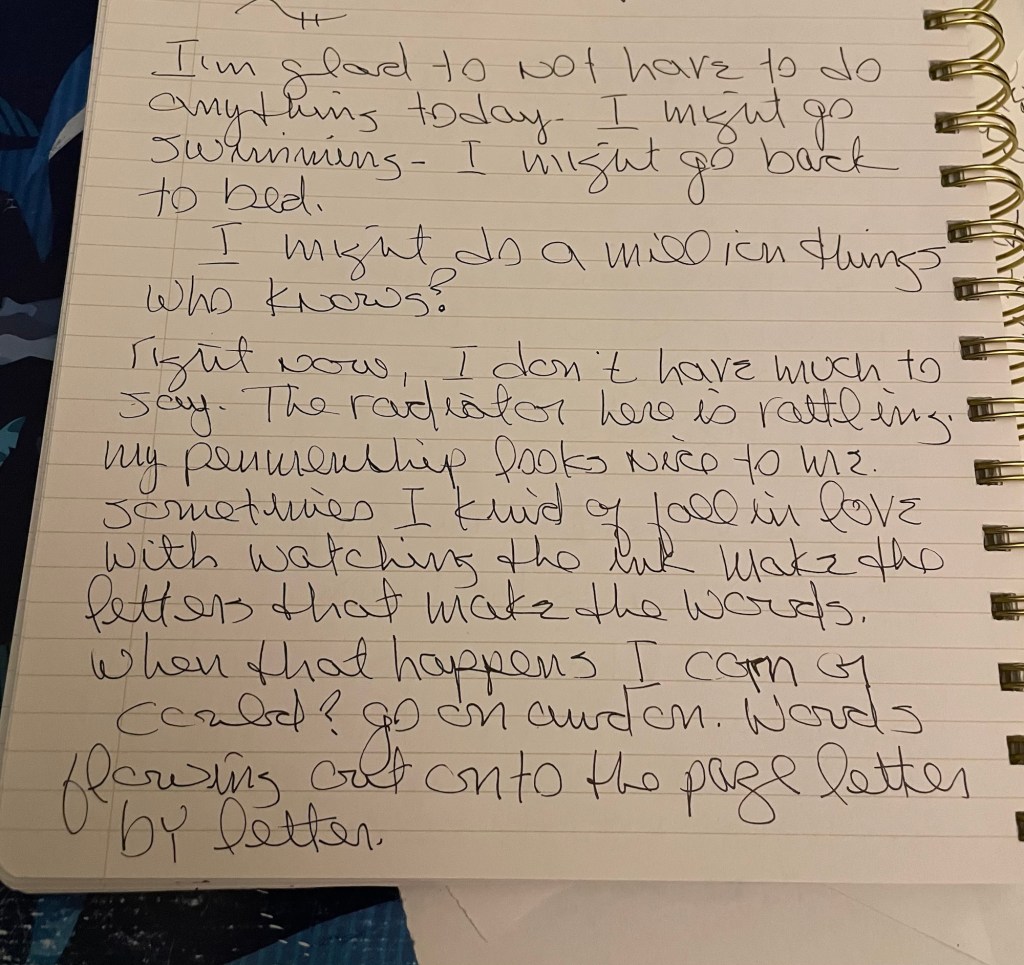 I'm glad to not have to do
anything today - I might go
swimming - I might go back
to bed.
I might do a million things
who knows?
right now, I don't have much to
say. The radiator here is rattling.
my penmenship looks nice to me.
sometimes I kind of fall in love
with watching the ink make the
letters that make the words.
when that happens I can or
could? go on and on. Words
flowing out onto the page letter
by letter.